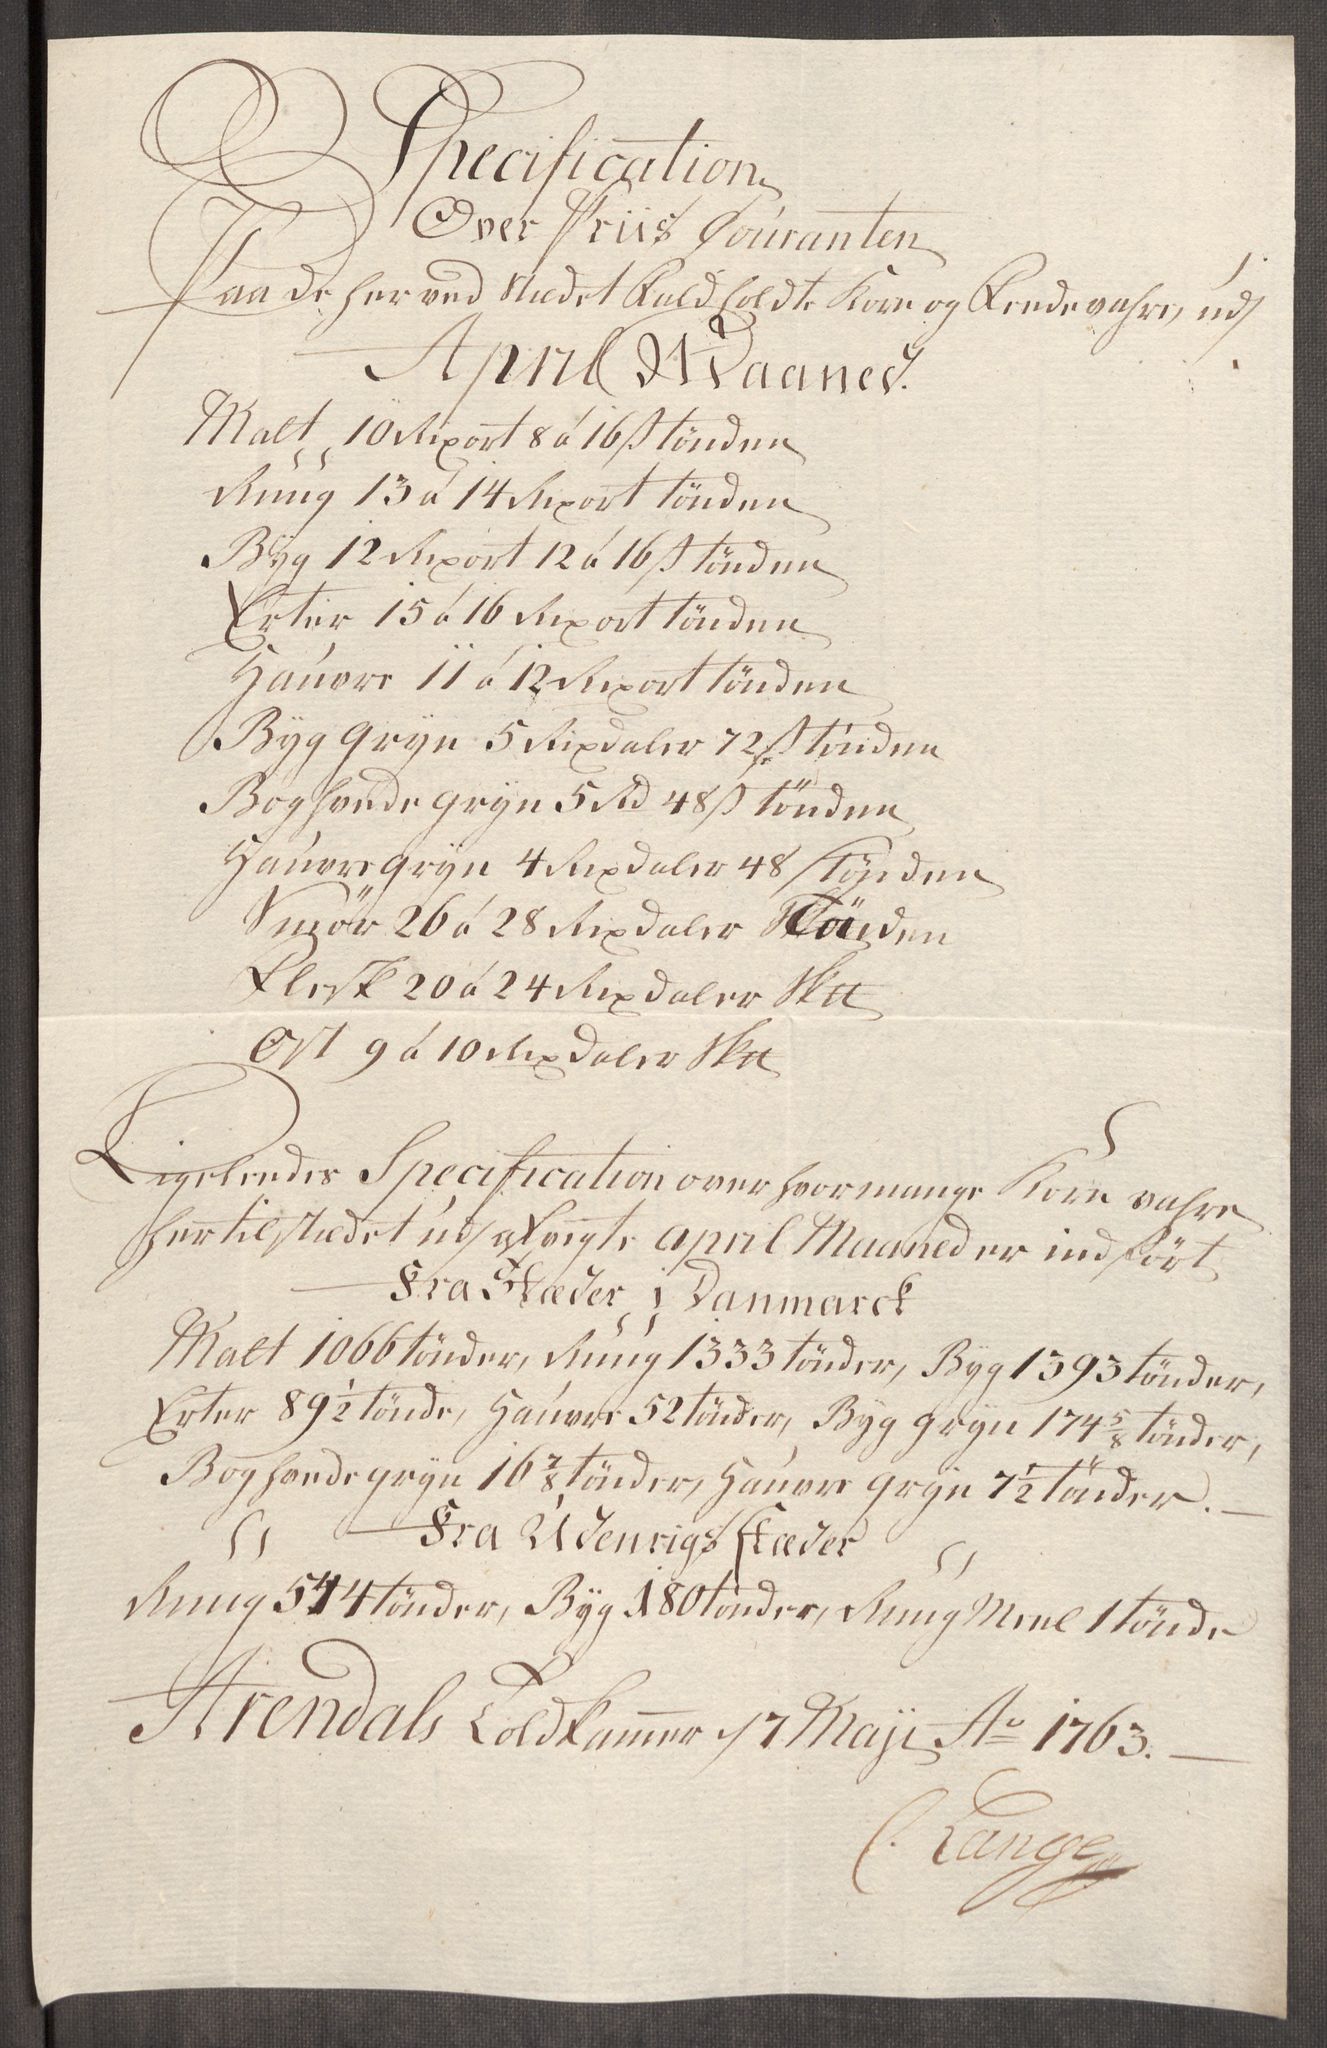 Specification
Over Priis Couranten
Paa de her ved Stædet Fald holdte Korn og Feedevahre, udj
April Maaned.
Malt 10 Rixort 8 á 16 ß tönden
Ruug 13 á 14 Rixort tönden
Byg 12 Rixort 12 á 16 ß tönden
Erter 15 á 16 Rixort tönden
Hauvre 11 á 12 Rixort tönden
Byg Gryn 5 Rixdaler 72 ß tönden
Boghvede gryn 5 Rd 48 ß tönden
Hauvre gryn 4 Rixdaler 48 ß tönden
Smör 26 á 28 Rixdaler Tönden
Flesk 20 á 24 Rixdaler Sk℔
Ost 9 á 10 Rixdaler Sk℔
Ligeleedes Specification over hvormange Korn vahre
her til Stædet udj afvigte April Maaned er indfört
Fra Stæder i Danmarck
Malt 1066 tönder, Ruug 1333 tönder, Byg 1393 tönder,
Erter 89 1/2 tönde, Hauvre 52 tönder, Byg gryn 174 5/8 tönder,
Boghvede gryn 16 7/8 tönder, Hauvre gryn 7 1/2 tönder.
Fra Udenrigs stæder
Ruug 544 tönder, Byg 180 tönder, Ruug Meel 1 tönde
Arendals Toldkammer d 7 Maji Ao 1763.
C. Lange